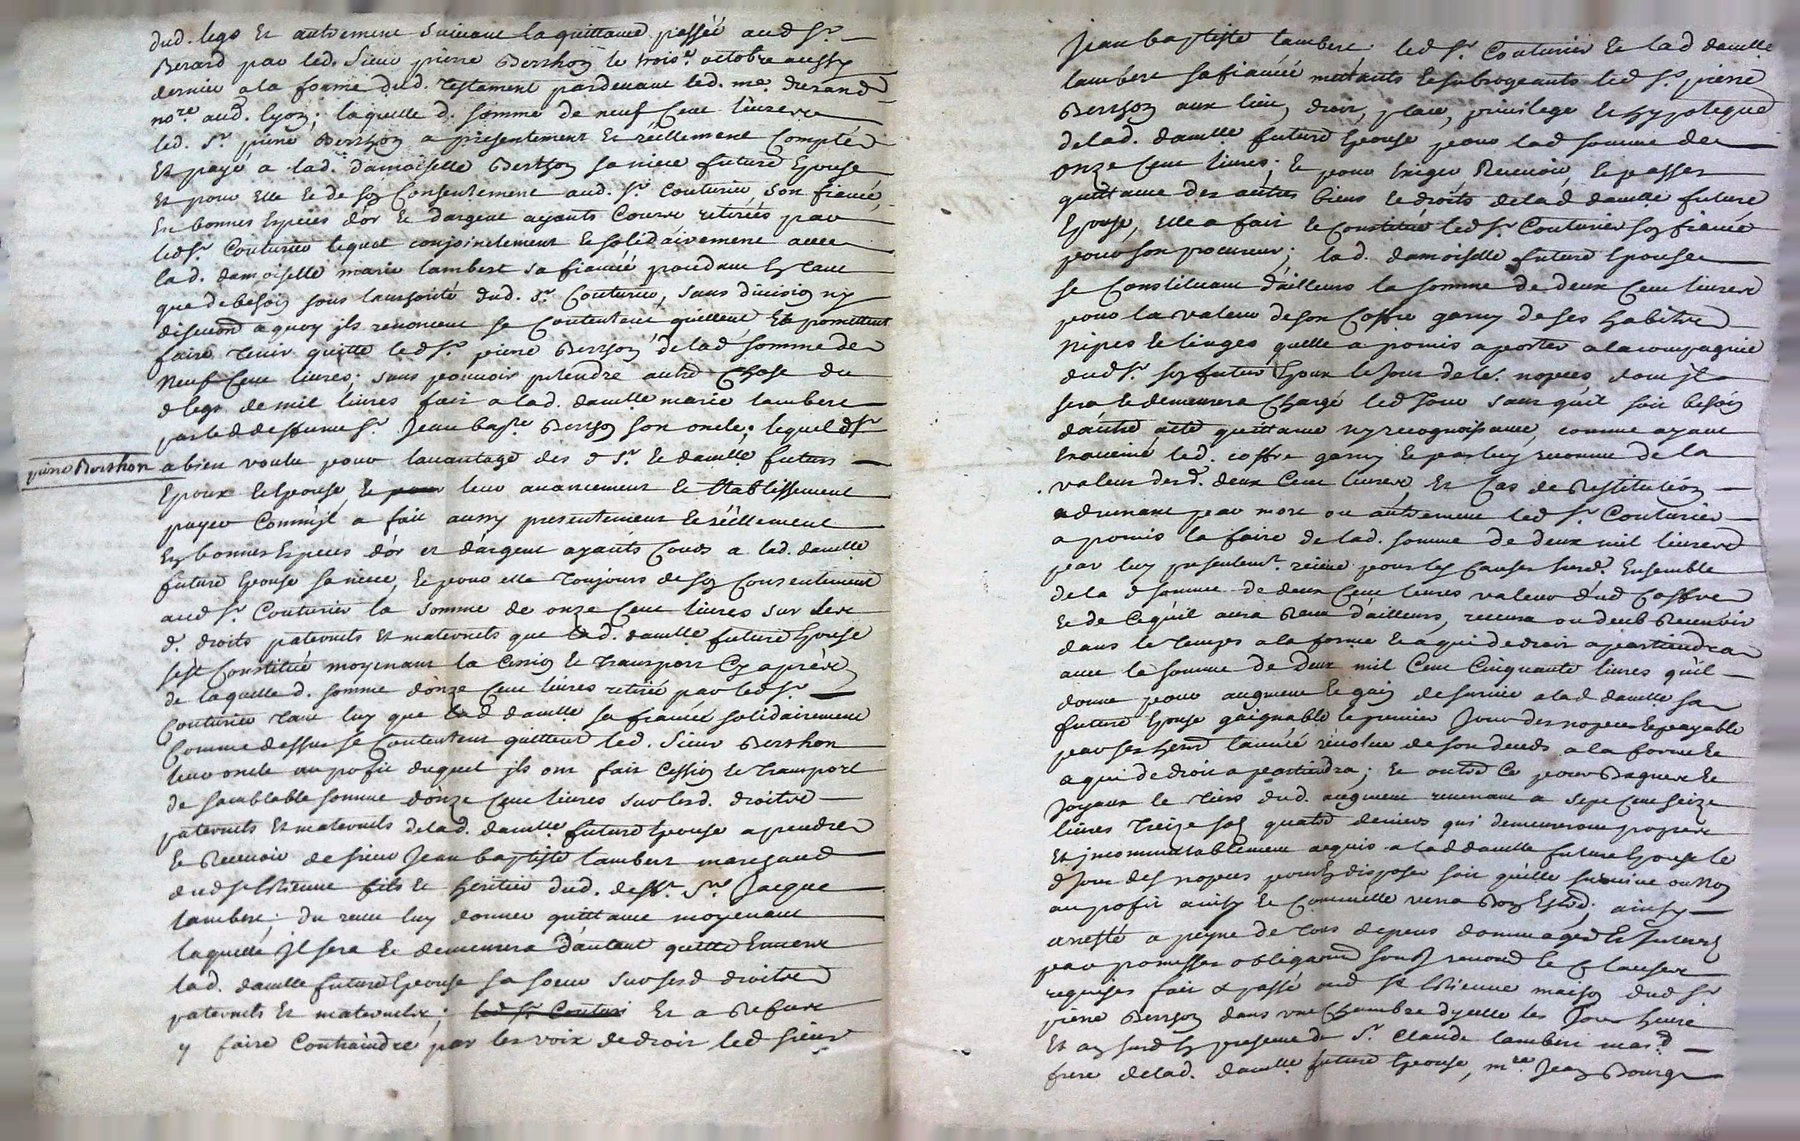 dud. legs et autrement suivant la quittance passée aud Sr
Berard par led. Sieur pierre Berthon le trois.e octobre aussy
dernier a la forme dud. testament pardevant led. me. durand
nore aud. lyon; laquelle d. somme de neuf Cent livres
led. Sr. pierre Berthon a presentement et réellement Compté
Et payé a lad. damoiselle Berthon sa niece future Epouse
Et pour Elle et de son Consentement aud. Sr. Couturier son fiancé,
En bonnes Especes d'or et d'argent ayants Cours retirées par
led Sr. Couturier lequel conjointement et solidairement avec
lad. damoiselle marie lambert sa fiancée procedant En tant
que de besoin sous l'authorité dud. Sr. Couturier, sans division ny
discution a quoy ils renoncent se Contentent quittent Et promettent
faire tenir quitte led Sr. pierre Berthon de lad somme de
Neuf Cent livres; sans pouvoir pretendre autre Chose du
d legs de mil livres fait a lad. damlle marie lambert
par led deffunt Sr. Jean bapte. Berthon son oncle; lequel d Sr
pierre Berthon a bien voulu pour lavantage des d Sr. et damlle futurs
Epoux et Epouse, et pour leur avancement et Etablissement
payer Comm'jl a fait aussy presentement et réellement
En bonnes Especes d'or et d'argent ayants Cours a lad. damlle
future Epouse sa niece, et pour elle toujours de son Consentement
aud Sr. Couturier la somme de onze Cent livres sur les
d. droits paternels et maternels que lad. damlle future Epouse
s'est Constitué moyenant la Cession et transport Cy après
de laquelle d. somme d'onze Cent livres retirée par led Sr
Couturier tant luy que lad damlle sa fiancée solidairement
Comme dessus se Contentent quittent led. Sieur Berthon
leur oncle au profit duquel jls ont fait Cession et transport
de semblable somme d'onze Cent livres sur lesd. droits
paternels et maternels de lad. damlle future Epouse a prendre
Et Recevoir de sieur Jean baptiste lambert marchand
dud St Etienne fils et heritier dud. defft. Sr Jacque
lambert; du receu luy donner quittance moyenant
laquelle Jl sera et demeurera d'autant quitte Envers
lad. damlle future Epouse sa soeur sur sesd droits
paternels Et maternels; led Sr Couturi Et a Refus
y faire Contraindre par les voix de droit led sieur
Jean baptiste lambert led Sr. Couturier et lad damlle
lambert sa fiancée mettants et subrogeants led Sr. pierre
Berthon aux lieu, droit, place, privilege et hypoteque
de lad. damlle future Epouse pour lad somme de
onze Cent livres; Et pour Exiger Recevoir, Et passer
quittance des autres biens et droits de lad damlle future
Epouse, Elle a fait Et Constitué led Sr. Couturier son fiancé
pour son procureur; lad. damoiselle future Epouse
se Constituant d'ailleurs la somme de deux Cent livres
pour la valeur de son Coffre garny de ses habits
Nipes et linges quelle a promis aporter a la compagnie
dud Sr. son futur Epoux le Jour de les. nopces dont jl
sera Et demeurera Chargé led Jour sans quil soit besoin
d'autre acte quittance ny recognoissance, comme ayant
led. coffre garny et par luy reconnu de la
valeur desd. deux Cent livres, Et Cas de Restitution
advenant par mort ou autrement led Sr. Couturier
a promis la faire de lad. somme de deux mil livres
par luy presentemt. reçüe pour les Causes susd. Ensemble
de la d somme de deux Cent livres valeur dud Coffre
Et de Cequil aura Receu d'ailleurs, receura ou deub Recevoir
dans le temps a la forme et a qui de droit apartiendra
avec la somme de deux mil Cent Cinquante livres quil
donne pour augment et gain de survie a lad damlle sa
future Epouse gaignable le premier Jour des nopces Et payable
par ses heirs l'année revolue de son deceds, a la forme Et
a qui de droit apartiendra; Et outre Ce pour Bagues Et
Joyaux le tiers dud. augment revenant a sept Cent seize
livres treize sols quatre deniers qui demeureront propres
Et jncommutablement acquis a lad damlle future Epouse le
d Jour des nopces pour En disposer soit quelle survive ou Non
au profit ainsy Et Comm'elle verra Bon Estre; ainsy
aresté a peyne de tous depens dommages Et Interets
par promesses obligaons soubs renonon Et Clauses
requises fait & passé aud St Etienne maison dud Sr
pierre Berthon dans une Chambre dycelle les Jour heure
Et an susd En presence de Sr. Claude lambert mard
frere de lad. damlle future Epouse, mre Jean Bourg